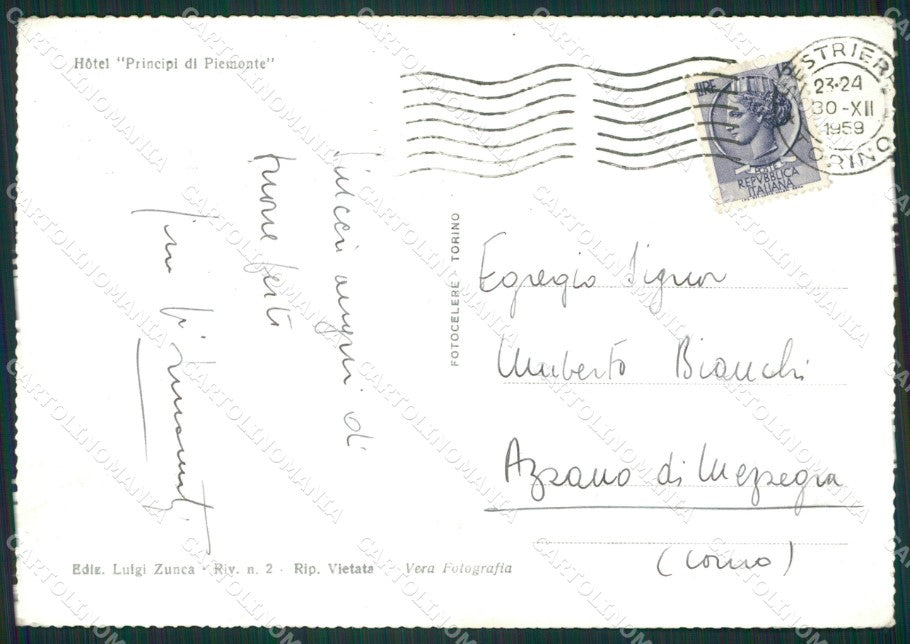 Hôtel "Principi di Piemonte"
Sinceri auguri di
buone feste
FOTOCELERE TORINO
SESTRIERE
23-24
30-XII
1959
TORINO
LIRE
POSTE
REPVBBLICA
ITALIANA
Egregio Signor
Umberto Bianchi
Azzano di Mezzegra
(Como)
Ediz. Luigi Zunca - Riv. n. 2 - Rip. Vietata Vera Fotografia
CARTOLINOMANIA